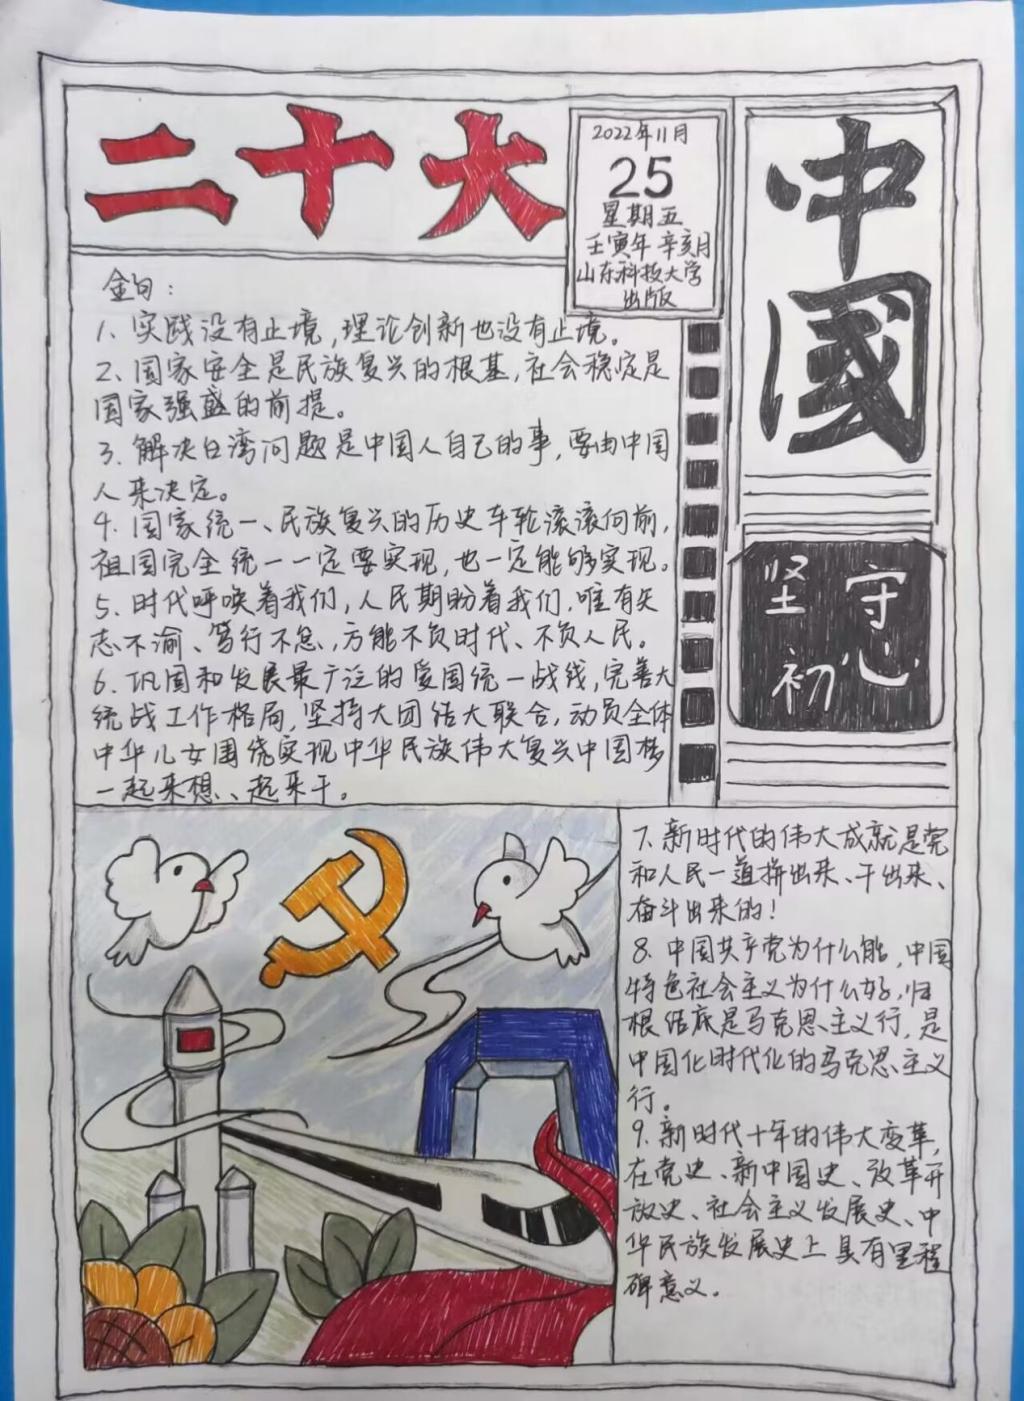 二十大
2022年11月
25
星期五
壬寅年 辛亥月
山东科技大学
出版
中
國
坚守
初心
金句：
1、实践没有止境，理论创新也没有止境。
2、国家安全是民族复兴的根基，社会稳定是
国家强盛的前提。
3、解决台湾问题是中国人自己的事，要由中国
人来决定。
4、国家统一、民族复兴的历史车轮滚滚向前，
祖国完全统一一定要实现，也一定能够实现。
5、时代呼唤着我们，人民期盼着我们，唯有矢
志不渝、笃行不怠，方能不负时代、不负人民。
6、巩固和发展最广泛的爱国统一战线，完善大
统战工作格局，坚持大团结大联合，动员全体
中华儿女围绕实现中华民族伟大复兴中国梦
一起来想、一起来干。
7、新时代的伟大成就是党
和人民一道拼出来、干出来、
奋斗出来的！
8、中国共产党为什么能，中国
特色社会主义为什么好，归
根结底是马克思主义行，是
中国化时代化的马克思主义
行。
9、新时代十年的伟大变革，
在党史、新中国史、改革开
放史、社会主义发展史、中
华民族发展史上具有里程
碑意义。